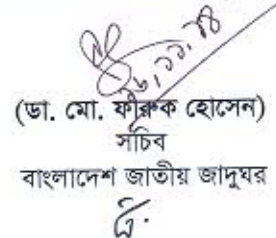 (ডা. মো. ফারুক হোসেন)
সচিব
বাংলাদেশ জাতীয় জাদুঘর